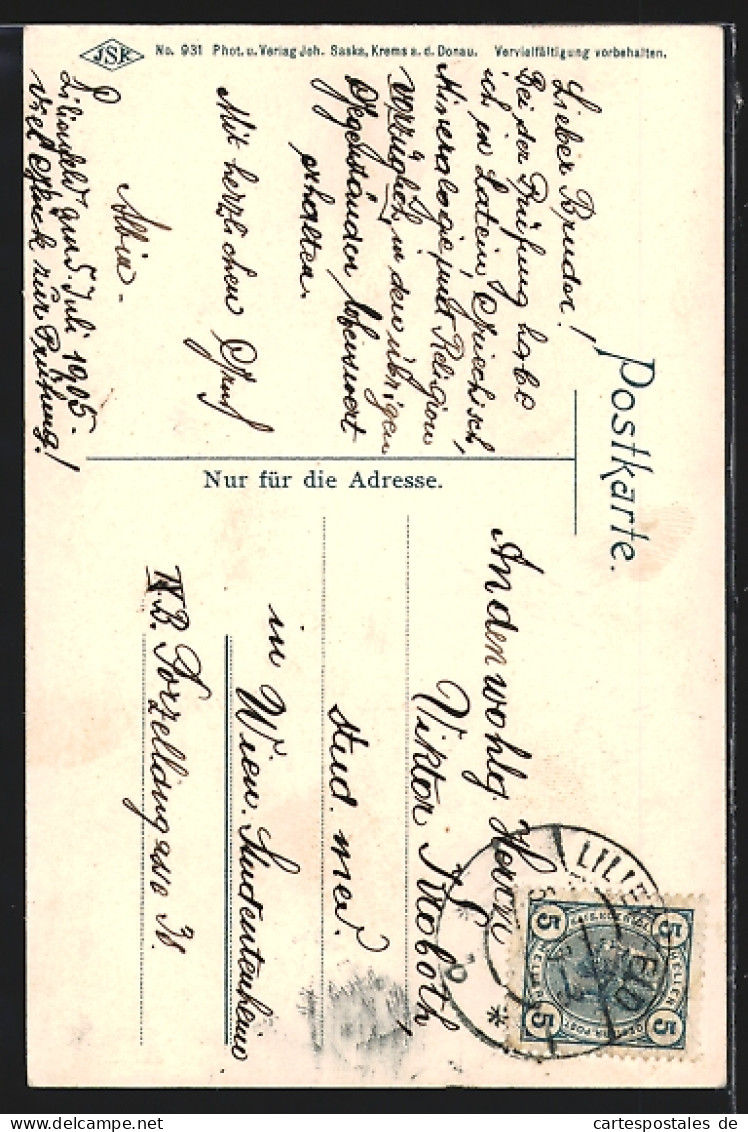 JSK No. 931 Phot. u. Verlag Joh. Saska, Krems a. d. Donau. Vervielfältigung vorbehalten.
Postkarte.
Lieber Bruder!
Bei der Prüfung habe
ich in Latein, Griechisch,
Mineralogie, und Religion
vorzüglich, in den übrigen
Gegenständen lobenswert
erhalten.
Mit herzlichen Gruß
Albin.
Lilienfeld, am 5. Juli 1905.
Viel Glück zur Prüfung!
Nur für die Adresse.
An den wohlg. Herrn
Viktor
stud. med.
in Wien. Studentenheim
IX.B. Porzellangasse 38
LILIENFELD
5 5
HELLER HELLER
5 5
cartespostales.de